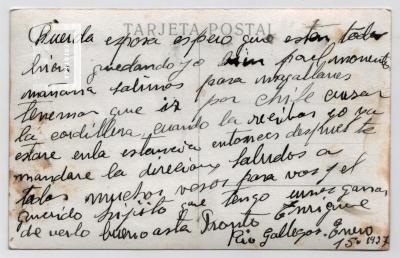 TARJETA POSTAL
Querida esposa espero que esten todos
bien quedando yo bien por el momento
mañana salimos para magallanes
tenemos que ir por chile crusar
la cordillera cuando la recibas yo ya
estare en la estancia entonces despues te
mandare la direcion saludos a
todos muchos vesos para vos y el
querido hijito que tengo unas ganas
de verlo bueno asta Pronto Enrique
Rio Gallegos Enero
15 1927